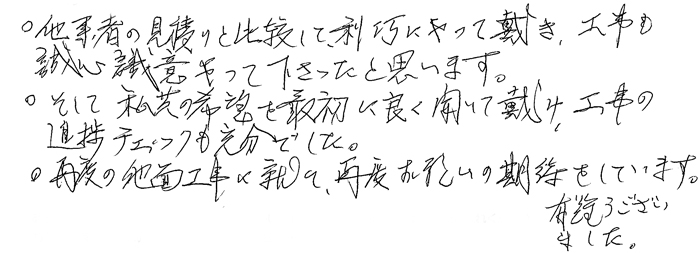 ○他事者の見積りと比較して、利巧にやって戴き、工事も
誠心誠意やって下さったと思います。
○そして私共の希望を最初に良く聞いて戴け、工事の
進捗チェックも充分でした。
○再度の他面工事に就いて、再度お願いの期待をしています。
有難うござい
ました。